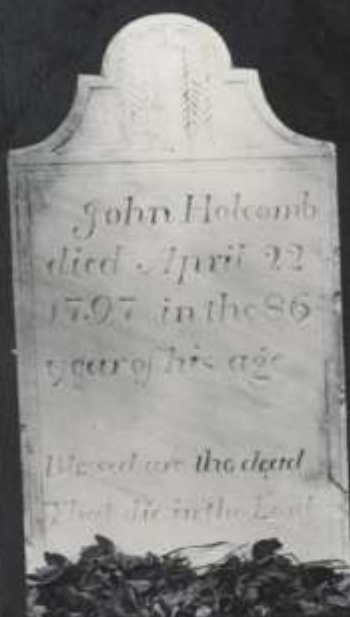 John Holcomb
died April 22
1797 in the 86
year of his age
Blessed are the dead
That die in the Lord